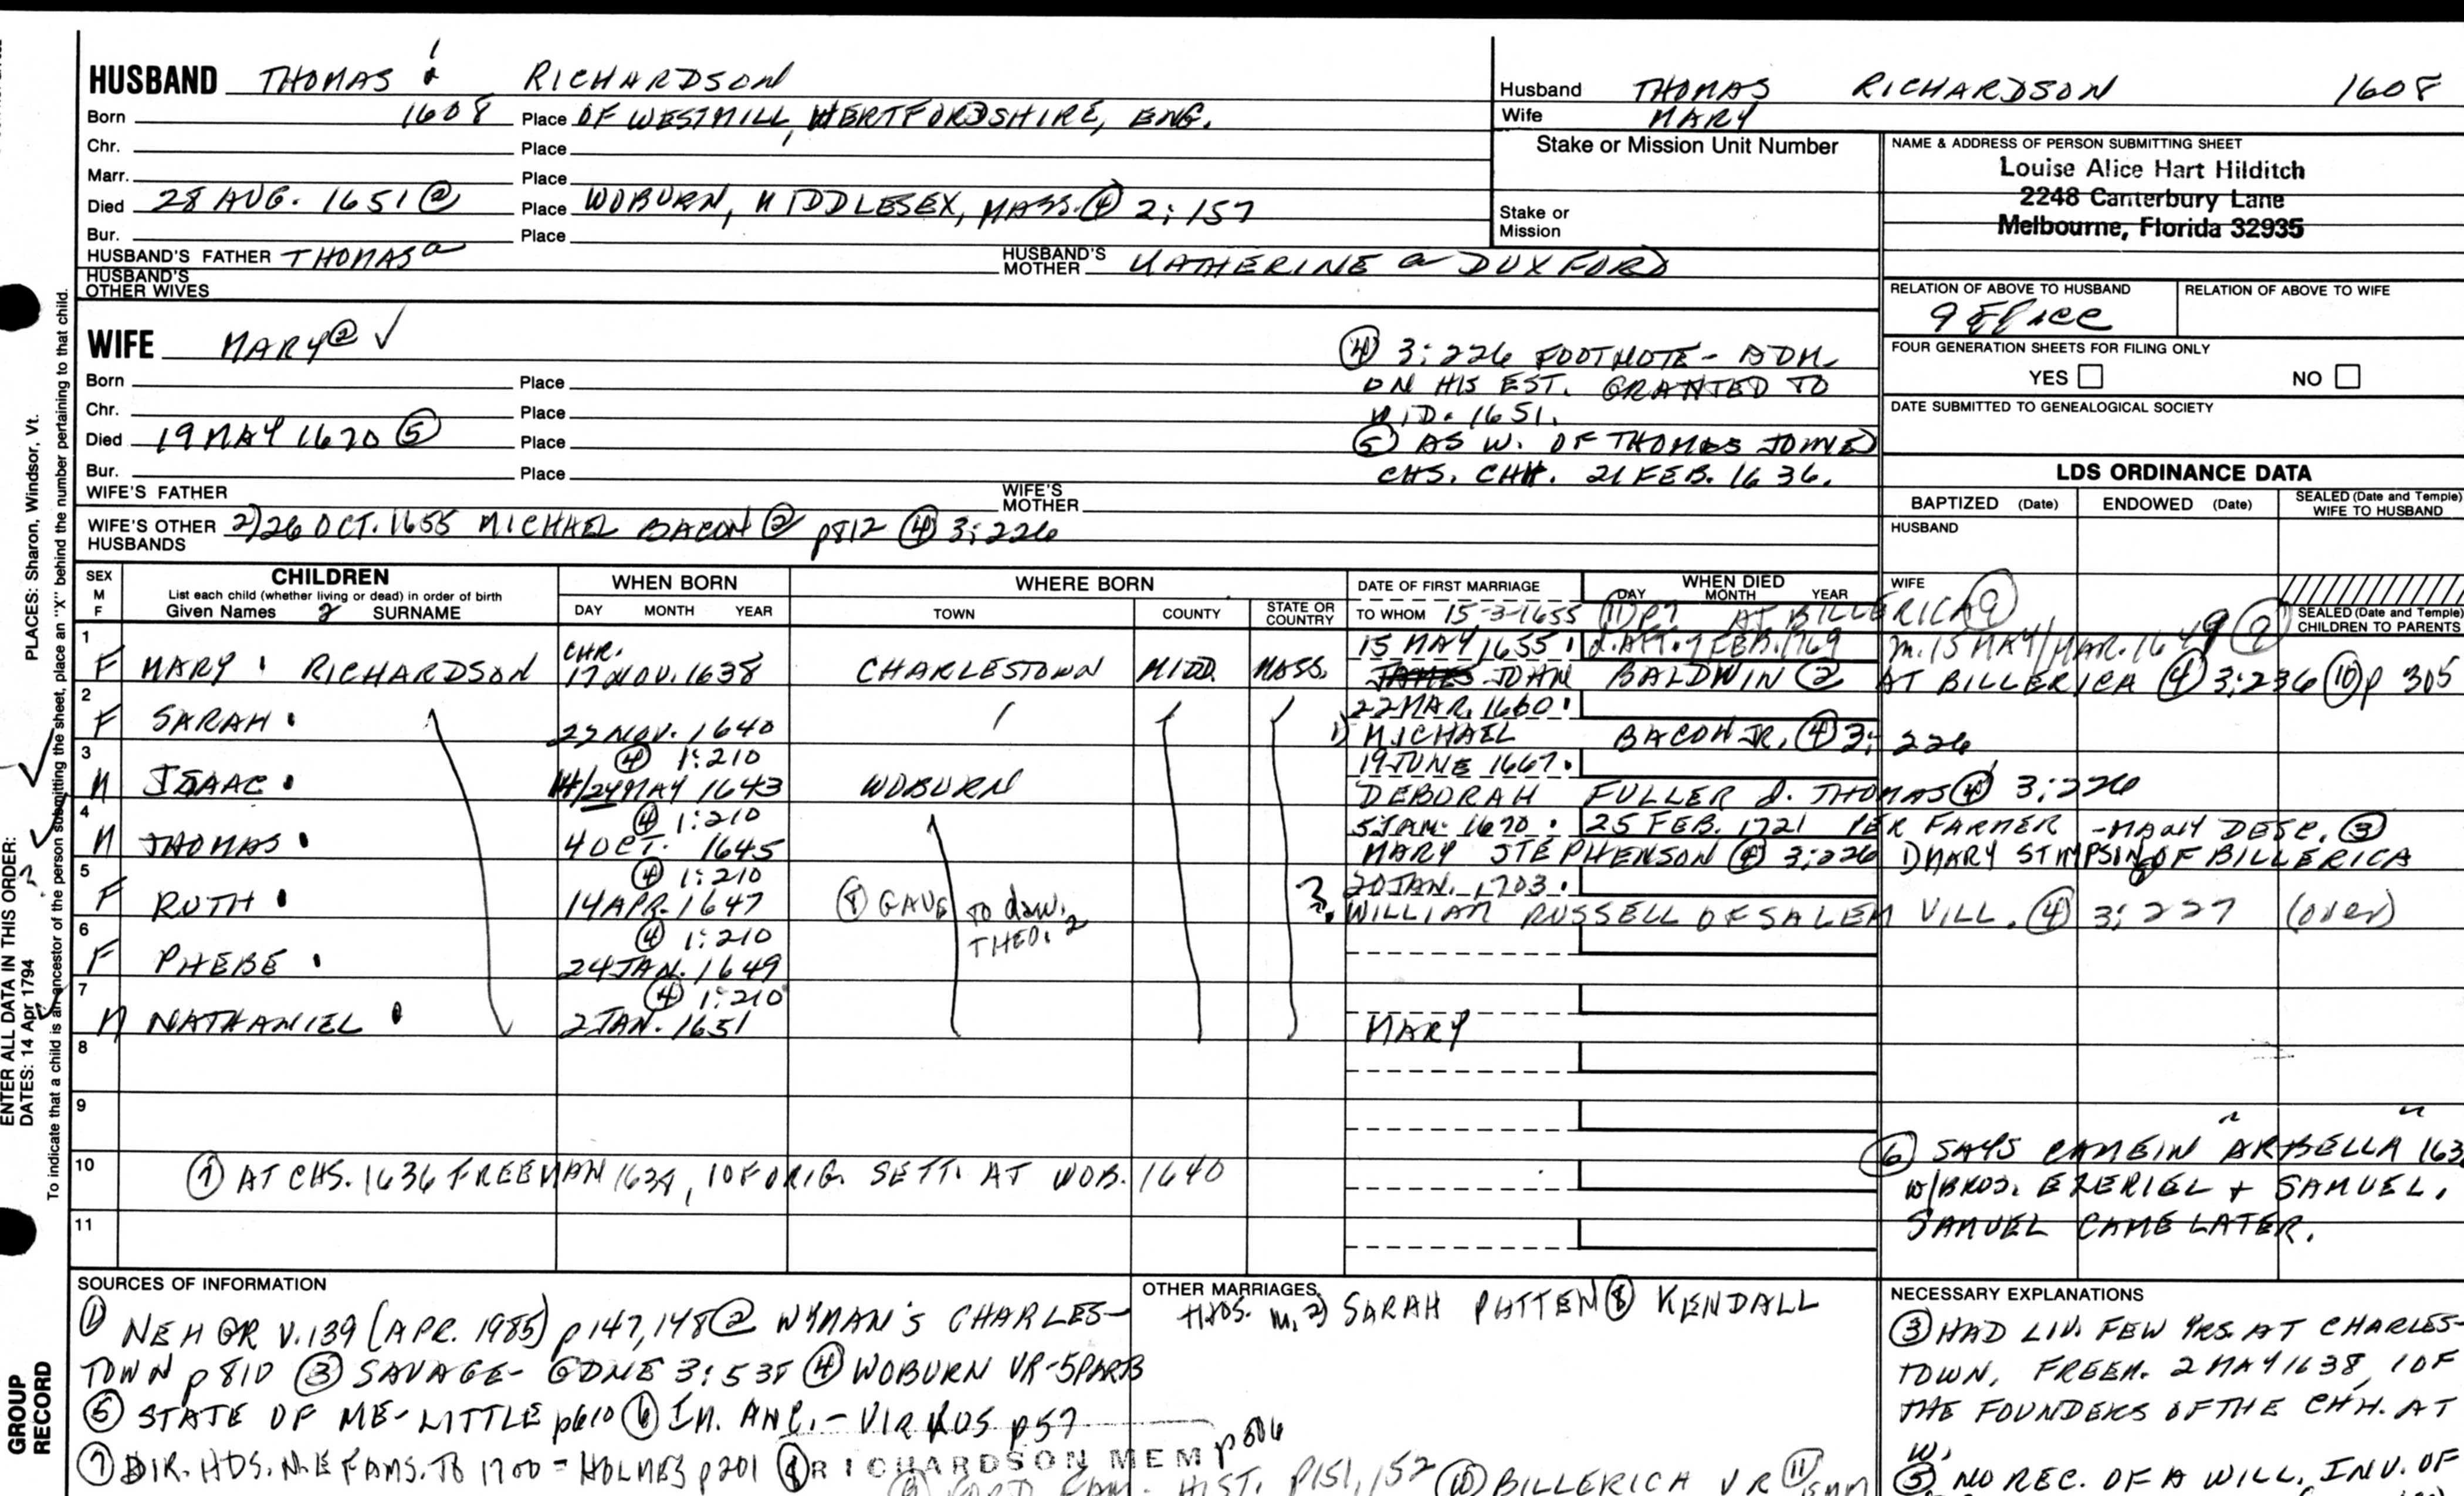 HUSBAND THOMAS RICHARDSON
Born 1608 Place OF WESTMILL, HERTFORDSHIRE, ENG.
Chr. Place
Marr. Place
Died 28 AUG. 1651 ② Place WOBURN, MIDDLESEX, MASS. ④ 2:157
Bur. Place
HUSBAND'S FATHER THOMAS HUSBAND'S MOTHER KATHERINE DUXFORD
HUSBAND'S OTHER WIVES
Husband THOMAS RICHARDSON 1608
Wife MARY
Stake or Mission Unit Number
Stake or Mission
NAME & ADDRESS OF PERSON SUBMITTING SHEET
Louise Alice Hart Hilditch
2248 Canterbury Lane
Melbourne, Florida 32935
RELATION OF ABOVE TO HUSBAND RELATION OF ABOVE TO WIFE
FOUR GENERATION SHEETS FOR FILING ONLY
YES NO
DATE SUBMITTED TO GENEALOGICAL SOCIETY
WIFE MARY ② ✓
Born Place
Chr. Place
Died 19 MAY 1670 ⑤ Place
Bur. Place
WIFE'S FATHER WIFE'S MOTHER
WIFE'S OTHER HUSBANDS 2) 26 OCT. 1655 MICHAEL BACON ② p812 ④ 3:226
④ 3:226 FOOTNOTE - ADM.
ON HIS EST. GRANTED TO
WID. 1651.
⑤ AS W. OF THOMAS JOINED
CHS. CHH. 21 FEB. 1636.
LDS ORDINANCE DATA
BAPTIZED (Date) ENDOWED (Date) SEALED (Date and Temple) WIFE TO HUSBAND
HUSBAND
WIFE
SEALED (Date and Temple) CHILDREN TO PARENTS
SEX M F
CHILDREN
List each child (whether living or dead) in order of birth
Given Names SURNAME
WHEN BORN
DAY MONTH YEAR
WHERE BORN
TOWN COUNTY STATE OR COUNTRY
DATE OF FIRST MARRIAGE
TO WHOM 15-3-1655 ⑪ p7 AT BILLERICA ⑨
WHEN DIED
DAY MONTH YEAR
1 CHR. 15 MAY 1655 d. AFT. 9 FEB. 1769 m. 15 MAY/MAR. 1649 ⑨
F MARY RICHARDSON 17 NOV. 1638 CHARLESTOWN MIDD. MASS. JAMES JOHN BALDWIN ② AT BILLERICA ④ 3:236 ⑩ p 305
2 22 MAR. 1660
F SARAH 22 NOV. 1640 1) MICHAEL BACON JR. ④ 3:226
3 ④ 1:210 19 JUNE 1667
M ISAAC 14/24 MAY 1643 WOBURN DEBORAH FULLER d. THOMAS ④ 3:226
4 ④ 1:210 5 JAN. 1670 25 FEB. 1721 PER FARMER - MANY DESC. ③
M THOMAS 4 OCT. 1645 MARY STEPHENSON ④ 3:226 1) MARY STIMPSON OF BILLERICA
5 ④ 1:210 20 JAN. 1703
F RUTH 14 APR. 1647 ⑧ GAVE TO daw. THEO. 2 ? WILLIAM RUSSELL OF SALEM VILL. ④ 3:227 (over)
6 ④ 1:210
F PHEBE 24 JAN. 1649
7 ④ 1:210
M NATHANIEL 2 JAN. 1651 MARY
8
9
10 ⑦ AT CHS. 1636 FREEMAN 1638, 1 OF ORIG. SETT. AT WOB. 1640
11
⑥ SAYS CAME IN "ARBELLA" 163
W/BROS. EZERIEL + SAMUEL.
SAMUEL CAME LATER.
SOURCES OF INFORMATION
① NEHGR V.139 (APR. 1985) p147,148 ② WYMAN'S CHARLES-
TOWN p810 ③ SAVAGE - GDNE 3:538 ④ WOBURN VR - 5 PARTS
⑤ STATE OF ME - LITTLE p610 ⑥ IM. ANC. - VIRKUS p57
⑦ DIR. HDS. N.E FAMS. TO 1700 - HOLMES p201 ⑧ RICHARDSON MEM p506
HIST. P151,152 ⑩ BILLERICA VR ⑪
OTHER MARRIAGES
THOS. m. 2) SARAH PATTEN ⑧ KENDALL
NECESSARY EXPLANATIONS
③ HAD LIV. FEW YRS. AT CHARLES-
TOWN, FREEM. 2 MAY 1638, 1 OF
THE FOUNDERS OF THE CHH. AT
W.
⑤ NO REC. OF A WILL. INV. OF
PLACES: Sharon, Windsor, Vt.
ENTER ALL DATA IN THIS ORDER:
DATES: 14 Apr 1794
To indicate that a child is an ancestor of the person submitting the sheet, place an "X" behind the number pertaining to that child.
GROUP RECORD